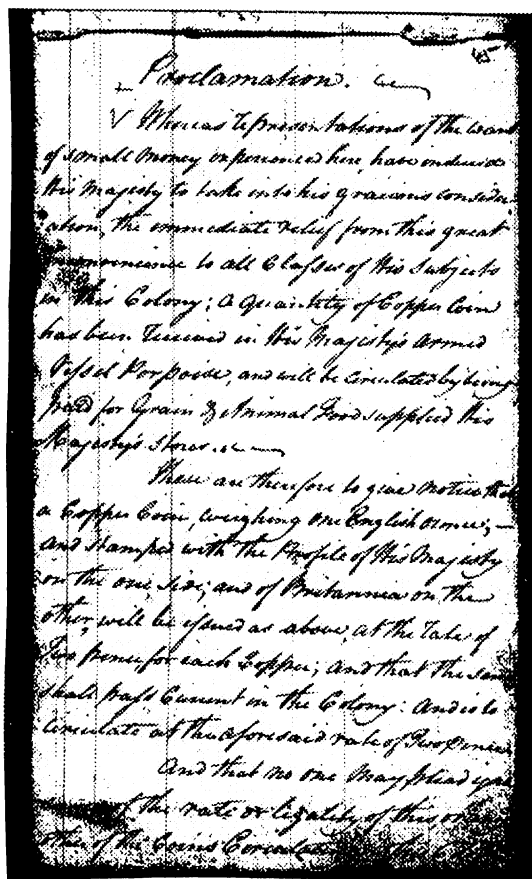 Proclamation.
Whereas representations of the want
of small Money experienced here, have induced
His Majesty to take into his gracious consider-
ation, the immediate relief from this great
inconvenience to all Classes of His Subjects
in this Colony; a Quantity of Copper Coin
has been received in His Majesty's Armed
Vessel Porpoise, and will be circulated by being
paid for Grain & Animal Food supplied His
Majesty's Stores.
These are therefore to give notice that
a Copper Coin, weighing one English ounce,
and stamped with the Profile of His Majesty
on the one side, and of Britannia on the
other, will be issued as above, at the Rate of
Two pence for each Copper; and that the same
shall pass Current in the Colony: and is to
Circulate at the aforesaid rate of Two Pence
And that no one may plead
of the rate or legality of this or
of the Coins